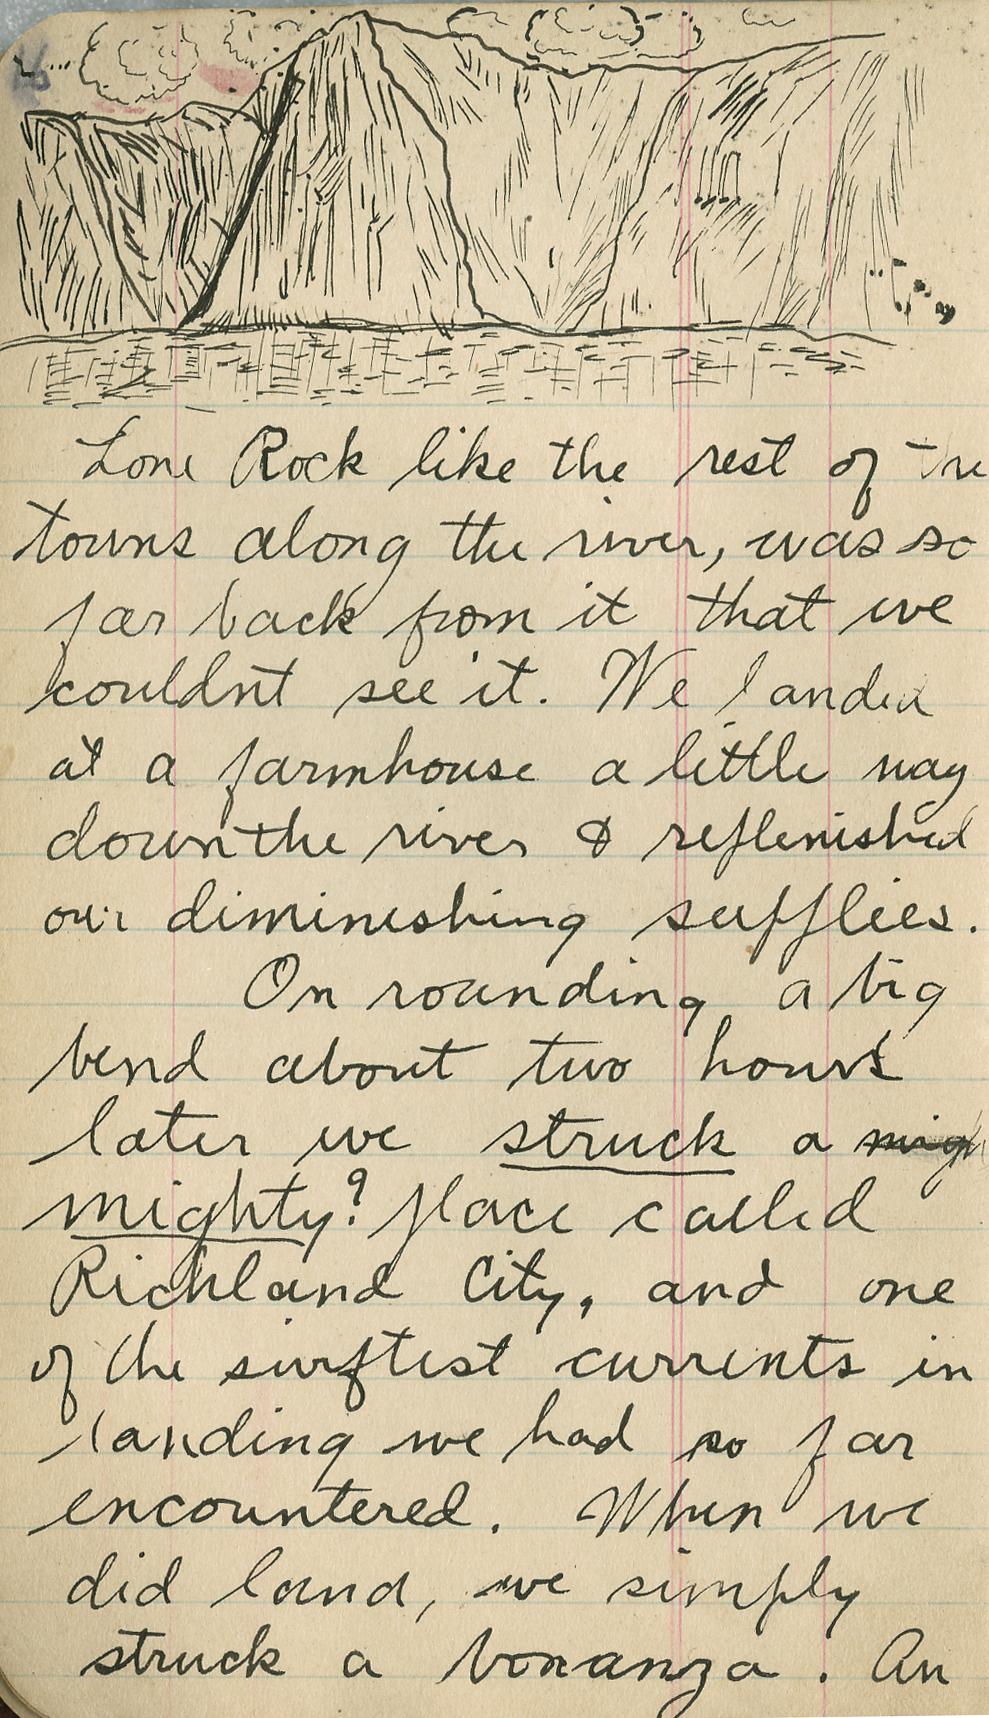 Lone Rock like the rest of the
towns along the river, was so
far back from it that we
couldnt see it. We landed
at a farmhouse a little way
down the river & replenished
our diminishing supplies.
On rounding a big
bend about two hours
later we struck a migh
mighty? place called
Richland City, and one
of the swiftest currents in
landing we had so far
encountered. When we
did land, we simply
struck a bonanza. An